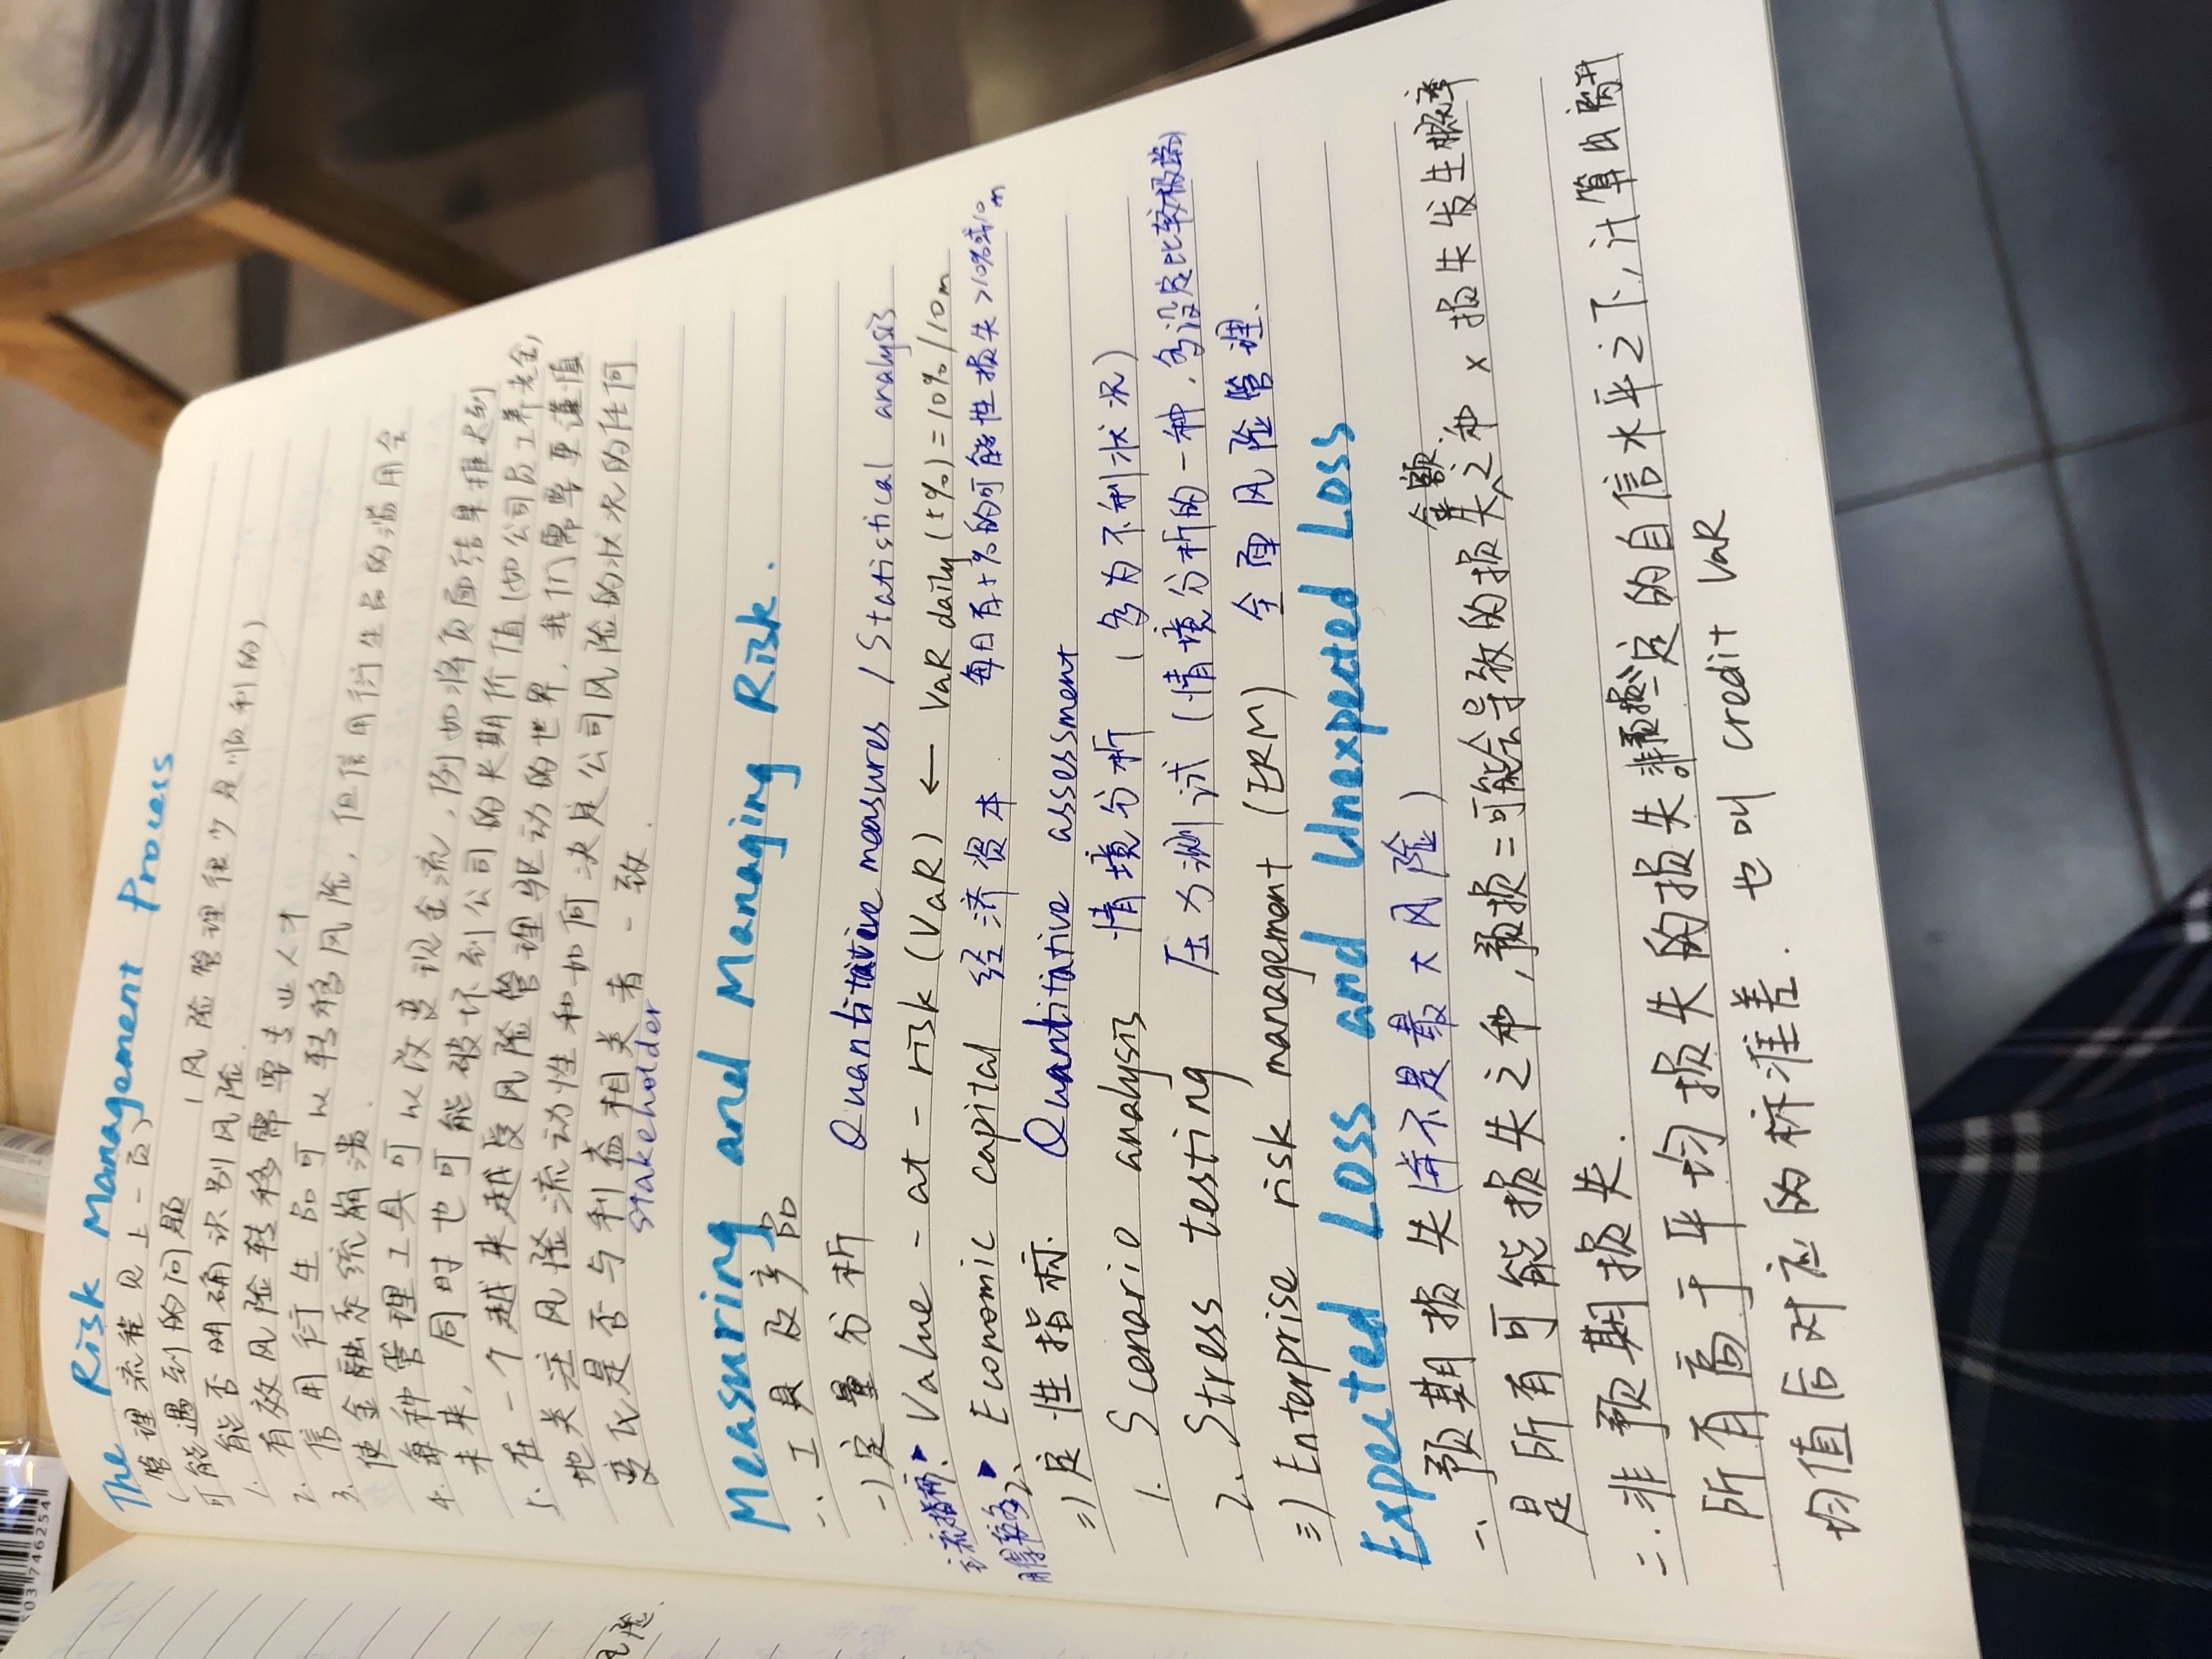 The Risk Management Process
(管理流程见上一页)
可能遇到的问题 (风险管理很少是顺利的)
1. 能否明确识别风险.
2. 有效风险转移需要专业人才
3. 信用衍生品可以转移风险, 但信用衍生品的滥用会
使金融系统崩溃.
4. 每种管理工具可以改变现金流, 例如将负面结果推迟到
未来, 同时也可能破坏到公司的长期价值(如公司员工养老金)
5. 在一个越来越受风险管理驱动的世界, 我们需要更谨慎
地关注风险流动性和如何决定公司风险的状况的任何
变化是否与利益相关者一致.
stakeholder
Measuring and Managing Risk.
一、工具及产品
一) 定量分析 Quantitative measures / Statistical analysis
1. Value-at-risk (VaR) ← VaR daily (1%) = 10% / 10m
2. Economic capital 经济资本. 每日有1%的可能性损失>10%或10m
二) 定性指标. Quantitative assessment
1. Scenario analysis 情境分析 (多为不利状况)
2. Stress testing 压力测试 (情境分析的一种, 多设定比较极端)
三) Enterprise risk management (ERM) 全面风险管理.
Expected Loss and Unexpected Loss
一、预期损失 (并不是最大风险)
是所有可能损失之和, 预损=可能会导致的损失金额之和 × 损失发生概率
二. 非预期损失.
所有高于平均损失的损失 定的自信水平之下, 计算出
均值后对应的标准差. 也叫 credit VaR
风险.
503746254